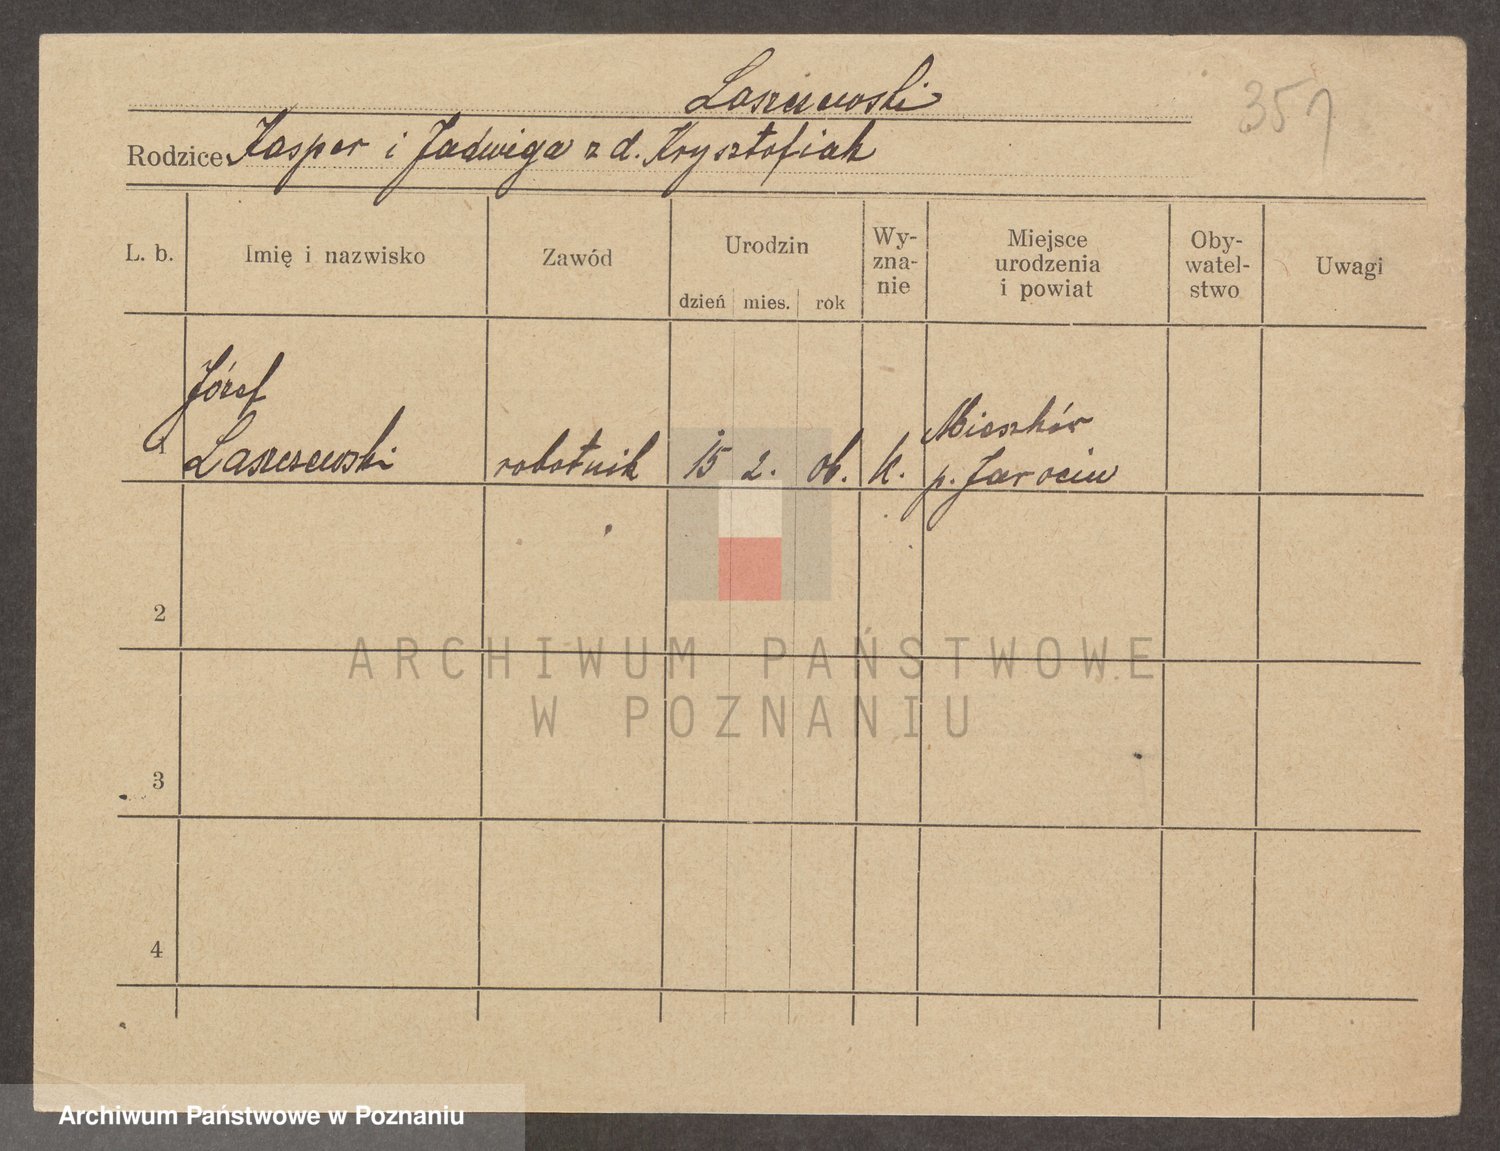 Laszczewski
357
Rodzice: Kasper i Jadwiga z d. Krysztofiak
L. b.
Imię i nazwisko
Zawód
Urodzin
dzień
mies.
rok
Wy-
zna-
nie
Miejsce
urodzenia
i powiat
Oby-
watel-
stwo
Uwagi
1
Józef
Laszczewski
robotnik
15
2.
06.
k.
Mieszków
p. Jarocin
2
3
4
ARCHIWUM PAŃSTWOWE
W POZNANIU
Archiwum Państwowe w Poznaniu